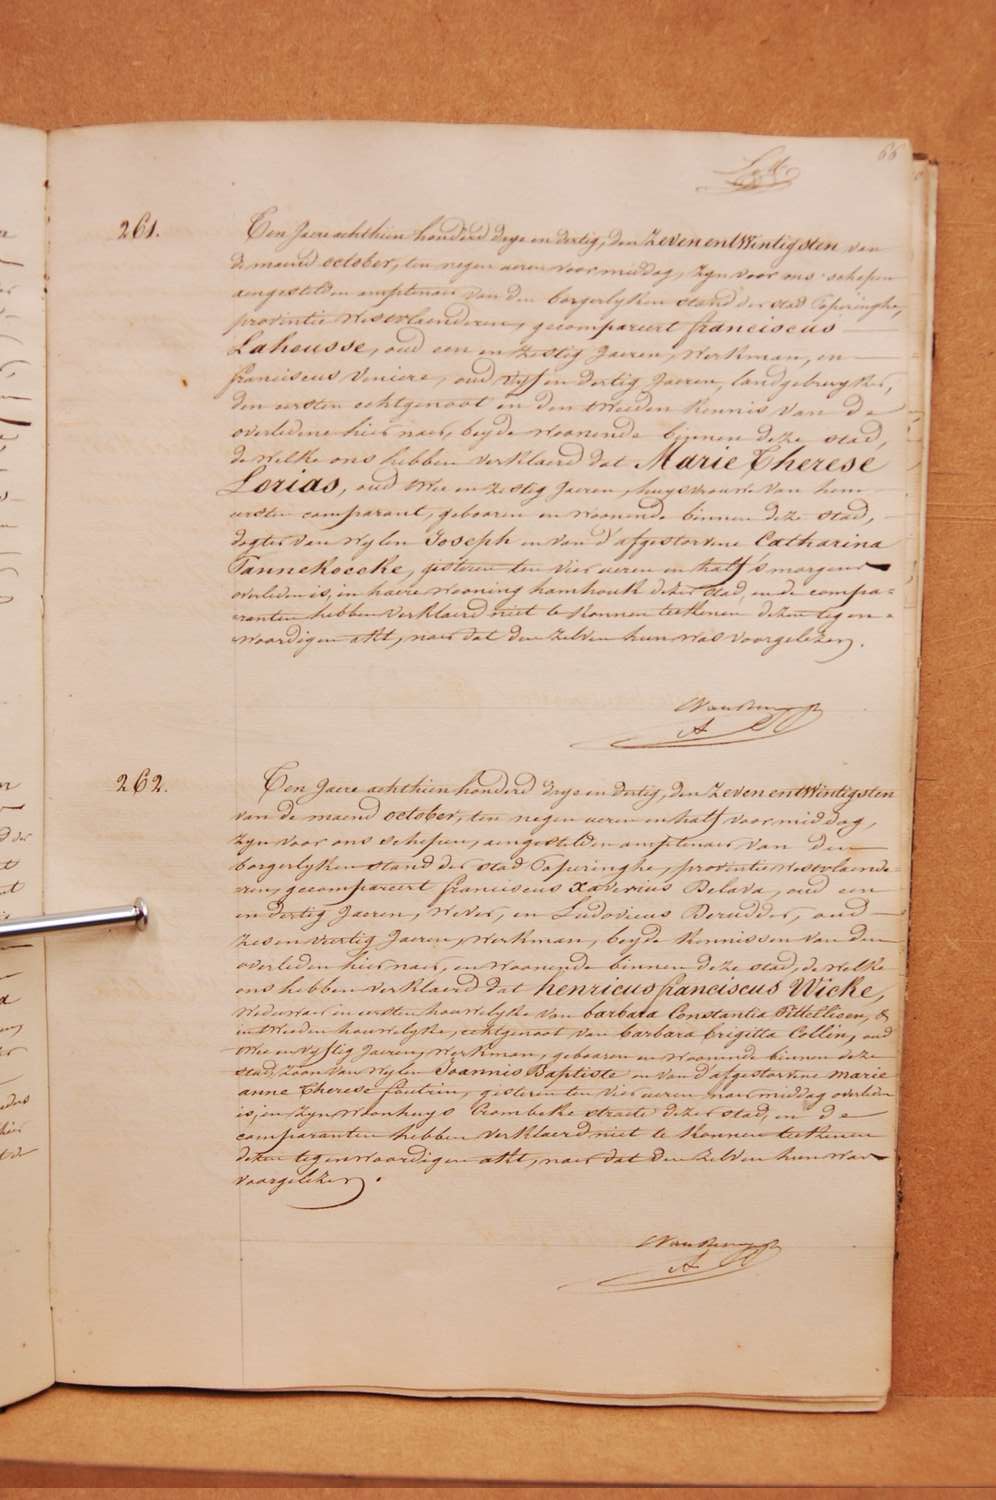 66
261.
Ten Jaere achthien honderd drye en dertig, den zevenentwintigsten van
de maend october, ten negen ueren voormiddag, zyn voor ons schepen
aengestelden amptenaer van den borgerlyken stand der stad Poperinghe,
provintie Westvlaenderen, gecompareert franciscus
Lahousse, oud een en zestig Jaeren, Werkman, en
franciscus Veniere, oud vyf en dertig Jaeren, landgebruyker,
den eersten echtgenoot en den tweeden kennis van de
overledene hier naer, beyde woonende binnen deze stad,
de welke ons hebben verklaerd dat Marie Therese
Lorias, oud twee en zestig Jaeren, huysvrouwe van hem
eersten comparant, gebooren en woonende binnen deze stad,
dogter van wylen Joseph en van d'afgestorvene Catharina
Pannekoecke, gisteren ten vier ueren en half 's morgens
overleden is, in haere wooning hamhoek dezer stad, en de compa-
ranten hebben verklaerd niet te konnen teekenen dezen tegen-
woordigen akt, naer dat den zelven hun was voorgelezen.
262.
Ten Jaere achthien honderd drye en dertig, den zevenentwintigsten
van de maend october, ten negen ueren en half voormiddag,
zyn voor ons schepen, aengestelden amptenaer van den
borgerlyken stand der stad Poperinghe, provintie Westvlaende-
ren, gecompareert franciscus xaverius Belava, oud een
en dertig Jaeren, Wever, en Ludovicus Derudder, oud
zes en veertig Jaeren, Werkman, beyde kennissen van den
overleden hier naer, en woonende binnen deze stad, de welke
ons hebben verklaerd dat henricus franciscus Wicke,
Weduwaer in eersten houwelyke van barbara Constantia Pittellioen, &
in tweeden houwelyke, echtgenoot van barbara brigitta Collin, oud
twee en vyftig Jaeren, Werkman, gebooren en woonende binnen deze
stad, zoon van wylen Joannis Baptiste en van d'afgestorvene marie
anne Therese foutrin, gisteren ten vier ueren naer middag overleden
is, in zyn woonhuys Crombeke straete dezer stad, en de
comparanten hebben verklaerd niet te konnen teekenen
dezen tegenwoordigen akt, naer dat den zelven hun was
voorgelezen.